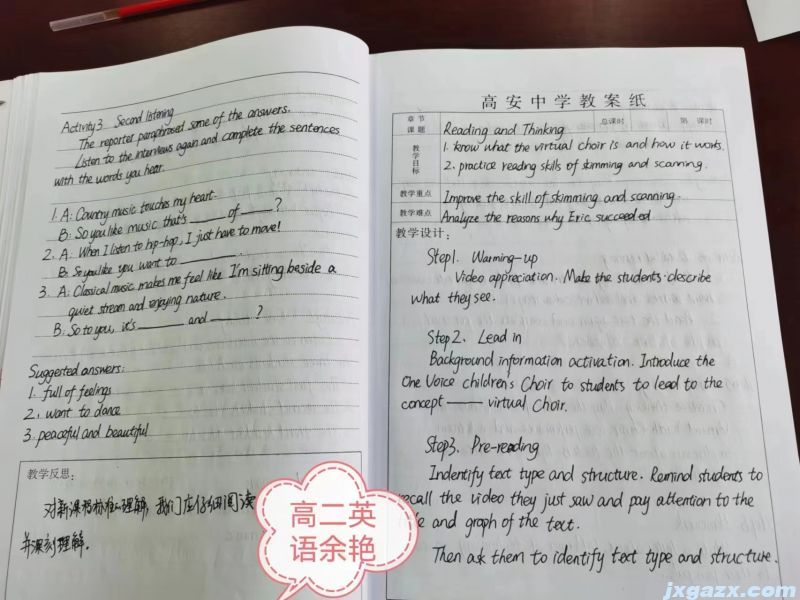 Activity 3 Second listening
The reporter paraphrased some of the answers.
Listen to the interviews again and complete the sentences
with the words you hear.
1. A: Country music touches my heart.
B: So you like music that's ____ of ____?
2. A: When I listen to hip-hop, I just have to move!
B: So you like you want to ____.
3. A: Classical music makes me feel like I'm sitting beside a
quiet stream and enjoying nature.
B. So to you, it's ____ and ____ ?
Suggested answers:
1. full of feelings
2. want to dance
3. peaceful and beautiful
教学反思:
对新课程标准的理解,我们应仔细阅读
并深刻理解.
高二英
语余艳
高安中学教案纸
章节课题 Reading and Thinking 总课时 第 课时
教学目标 1. know what the virtual choir is and how it works.
2. practice reading skills of skimming and scanning.
教学重点 Improve the skill of skimming and scanning.
教学难点 Analyze the reasons why Eric succeeded
教学设计:
Step1. Warming-up
Video appreciation. Make the students describe
what they see.
Step2. Lead in
Background information activation. Introduce the
One Voice children's Choir to students to lead to the
concept —— virtual Choir.
Step3. Pre-reading
Indentify text type and structure. Remind students to
recall the video they just saw and pay attention to the
and graph of the text.
Then ask them to identify text type and structure.
jxgazx.com